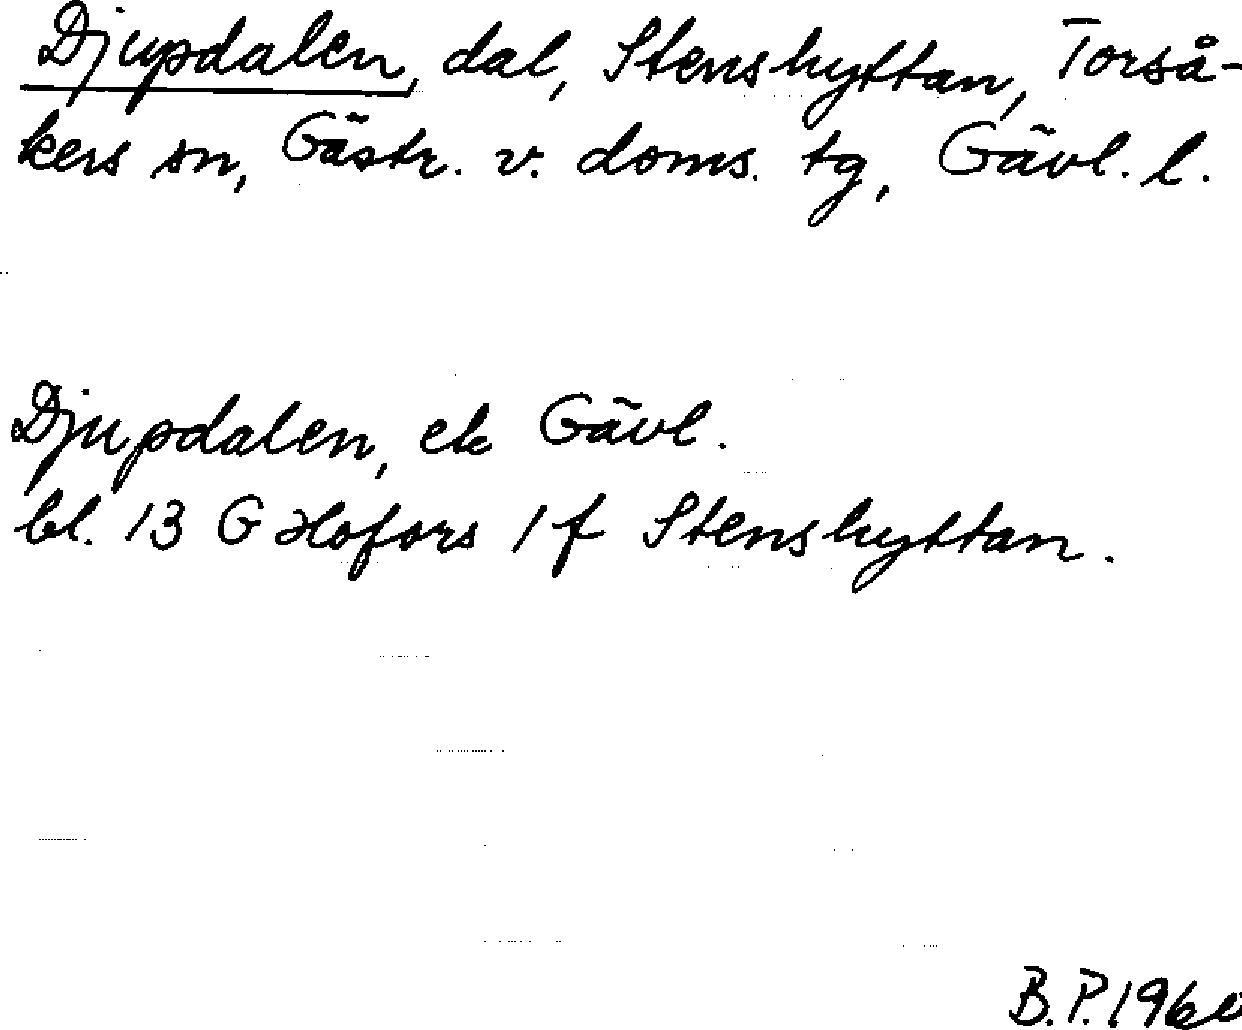 Djupdalen, dal, Stenshyttan, Torså-
kers sn, Gästr. v. doms. tg, Gävl. l.
Djupdalen, ek Gävl.
bl. 13 G Hofors 1 f Stenshyttan.
B.P. 1960